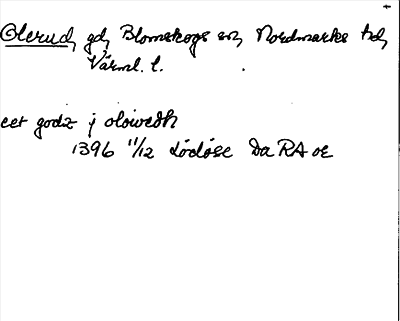 Olerud, gd, Blomskogs sn, Nordmarks hd,
Värml. l.
eet godz j oloirødh
1396 11/12 Lödöse Da RA or